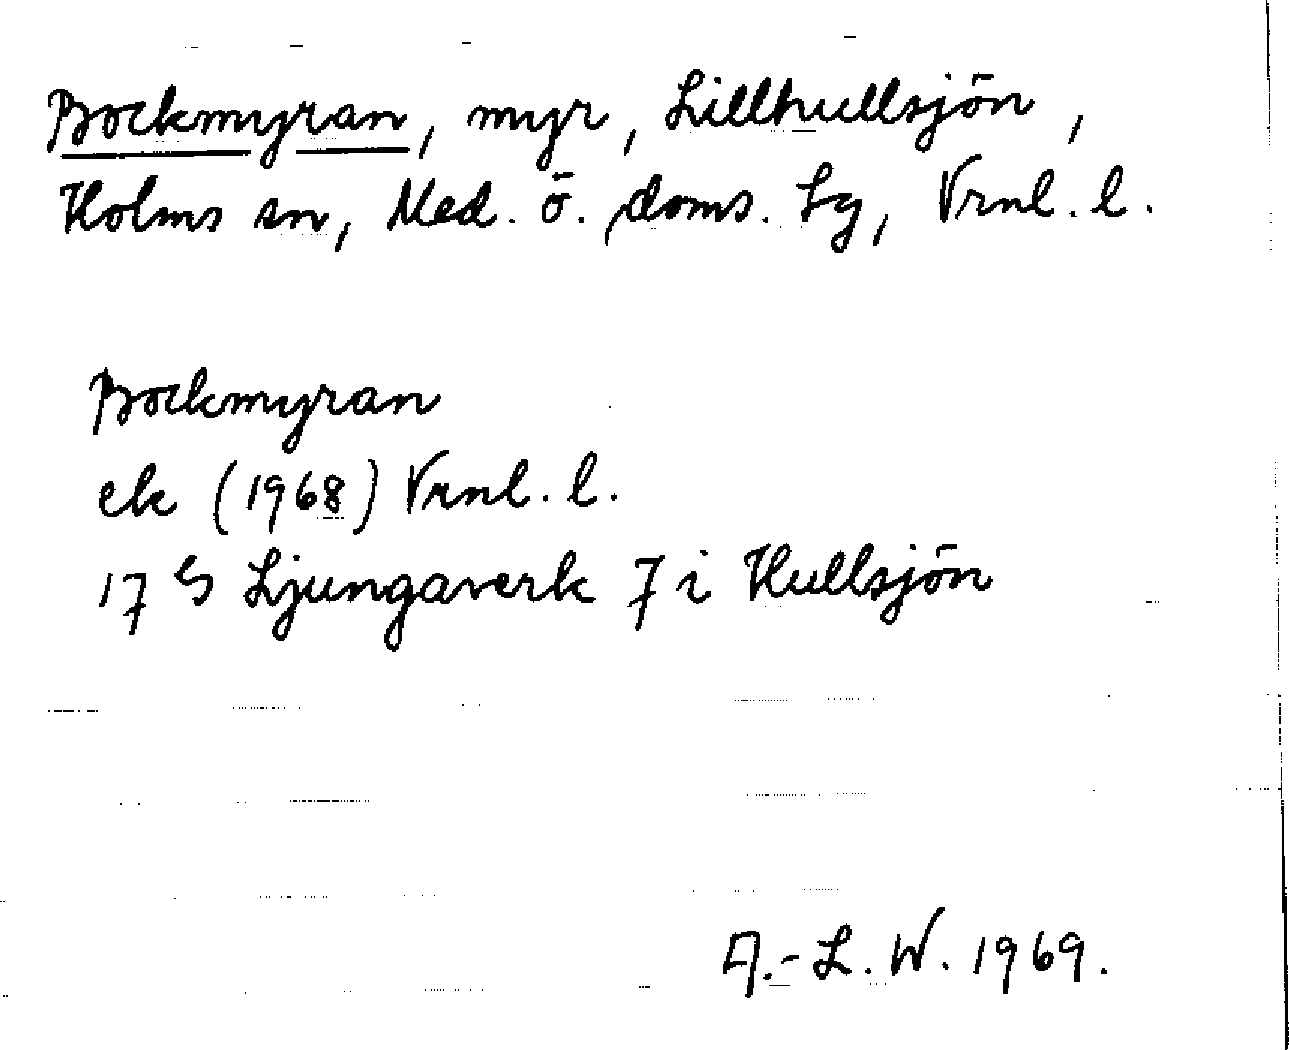 Bockmyran, myr, Lillhullsjön,
Holms sn, Med. ö. doms. tg, Vrnl. l.
Bockmyran
ek (1968) Vrnl. l.
17 S Ljungaverk 7 i Hullsjön
A.-L. W. 1969.